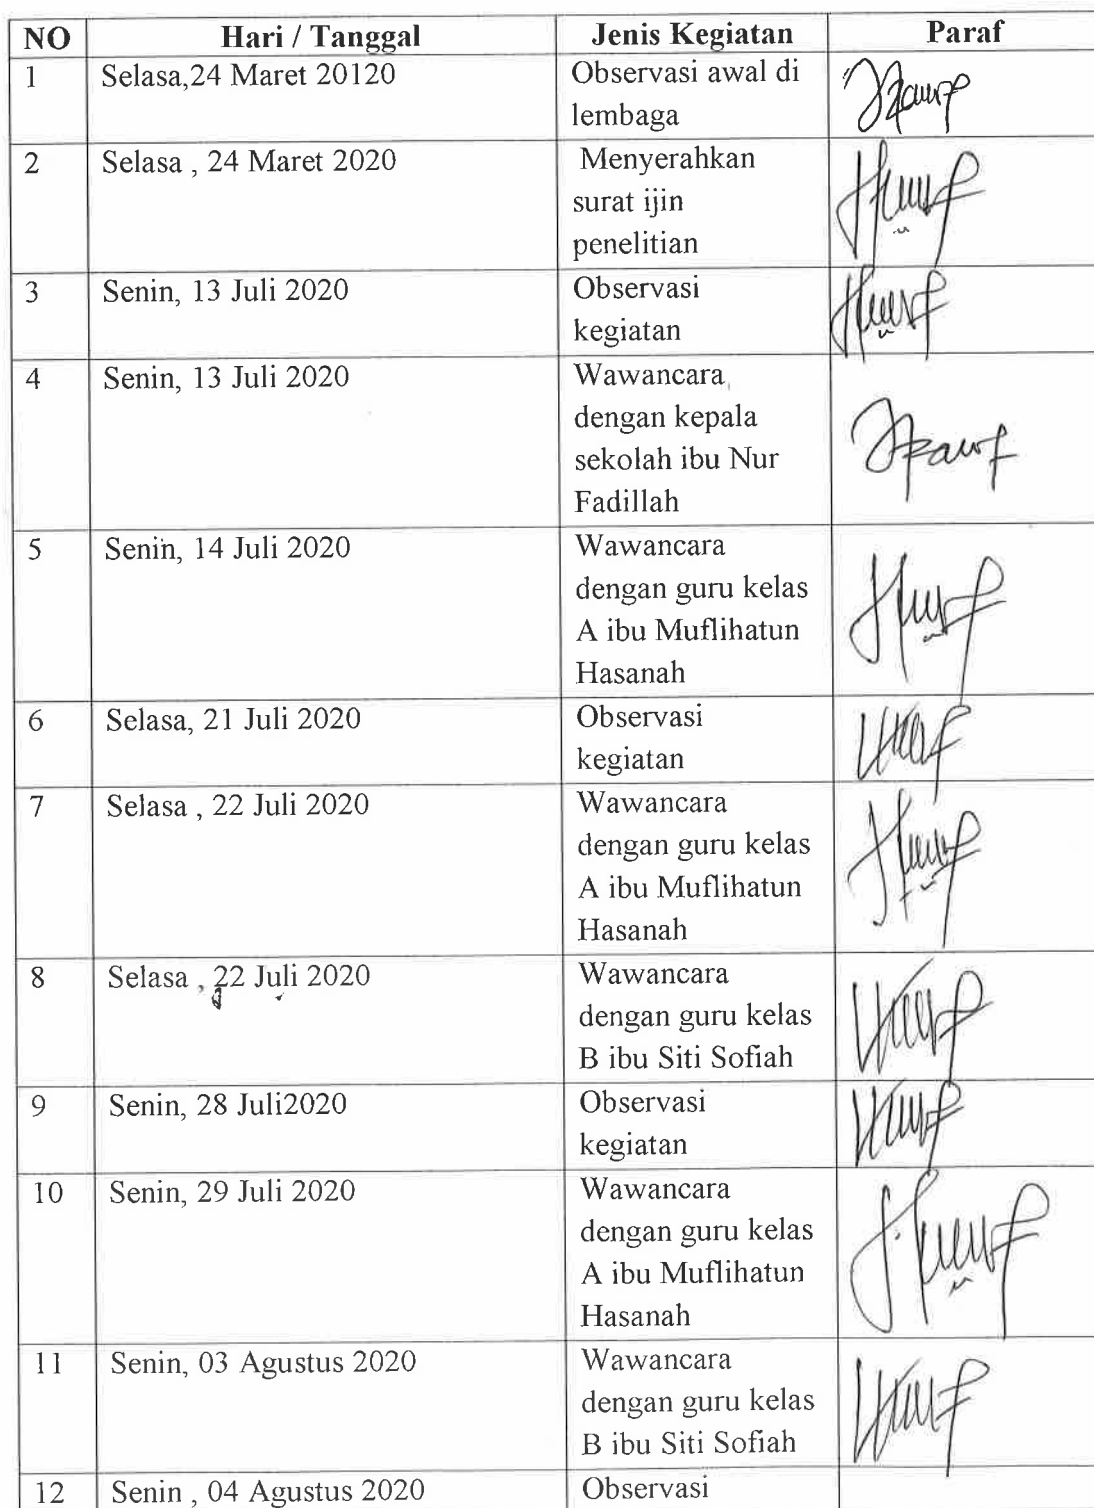 NO Hari / Tanggal Jenis Kegiatan Paraf
1 Selasa,24 Maret 20120 Observasi awal di
lembaga
2 Selasa , 24 Maret 2020 Menyerahkan
surat ijin
penelitian
3 Senin, 13 Juli 2020 Observasi
kegiatan
4 Senin, 13 Juli 2020 Wawancara
dengan kepala
sekolah ibu Nur
Fadillah
5 Senin, 14 Juli 2020 Wawancara
dengan guru kelas
A ibu Muflihatun
Hasanah
6 Selasa, 21 Juli 2020 Observasi
kegiatan
7 Selasa , 22 Juli 2020 Wawancara
dengan guru kelas
A ibu Muflihatun
Hasanah
8 Selasa , 22 Juli 2020 Wawancara
dengan guru kelas
B ibu Siti Sofiah
9 Senin, 28 Juli2020 Observasi
kegiatan
10 Senin, 29 Juli 2020 Wawancara
dengan guru kelas
A ibu Muflihatun
Hasanah
11 Senin, 03 Agustus 2020 Wawancara
dengan guru kelas
B ibu Siti Sofiah
12 Senin , 04 Agustus 2020 Observasi